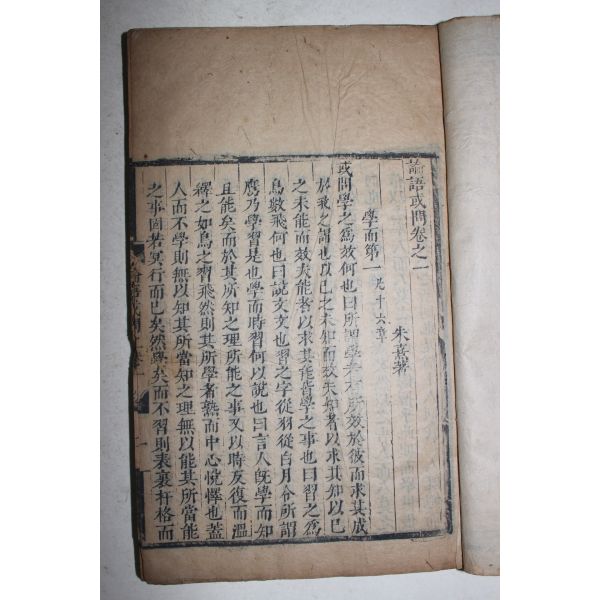 論語或問卷之一
朱熹著
學而第一 凡十六章
或問學之為效何也曰所謂學者有所效於彼而求其成
於我之謂也以己之未知而效夫知者以求其知以己
之未能而效夫能者以求其能皆學之事也曰習之為
鳥數飛何也曰說文文也習之字從羽從白月令所謂
鷹乃學習是也學而時習何以說也曰言人旣學而知
且能矣而於其所知之理所能之事又以時反復而溫
繹之如鳥之習飛然則其所學者熟而中心悅懌也蓋
人而不學則無以知其所當知之理無以能其所當能
之事固若冥行而已矣然學矣而不習則表裏扞格而
論語或問